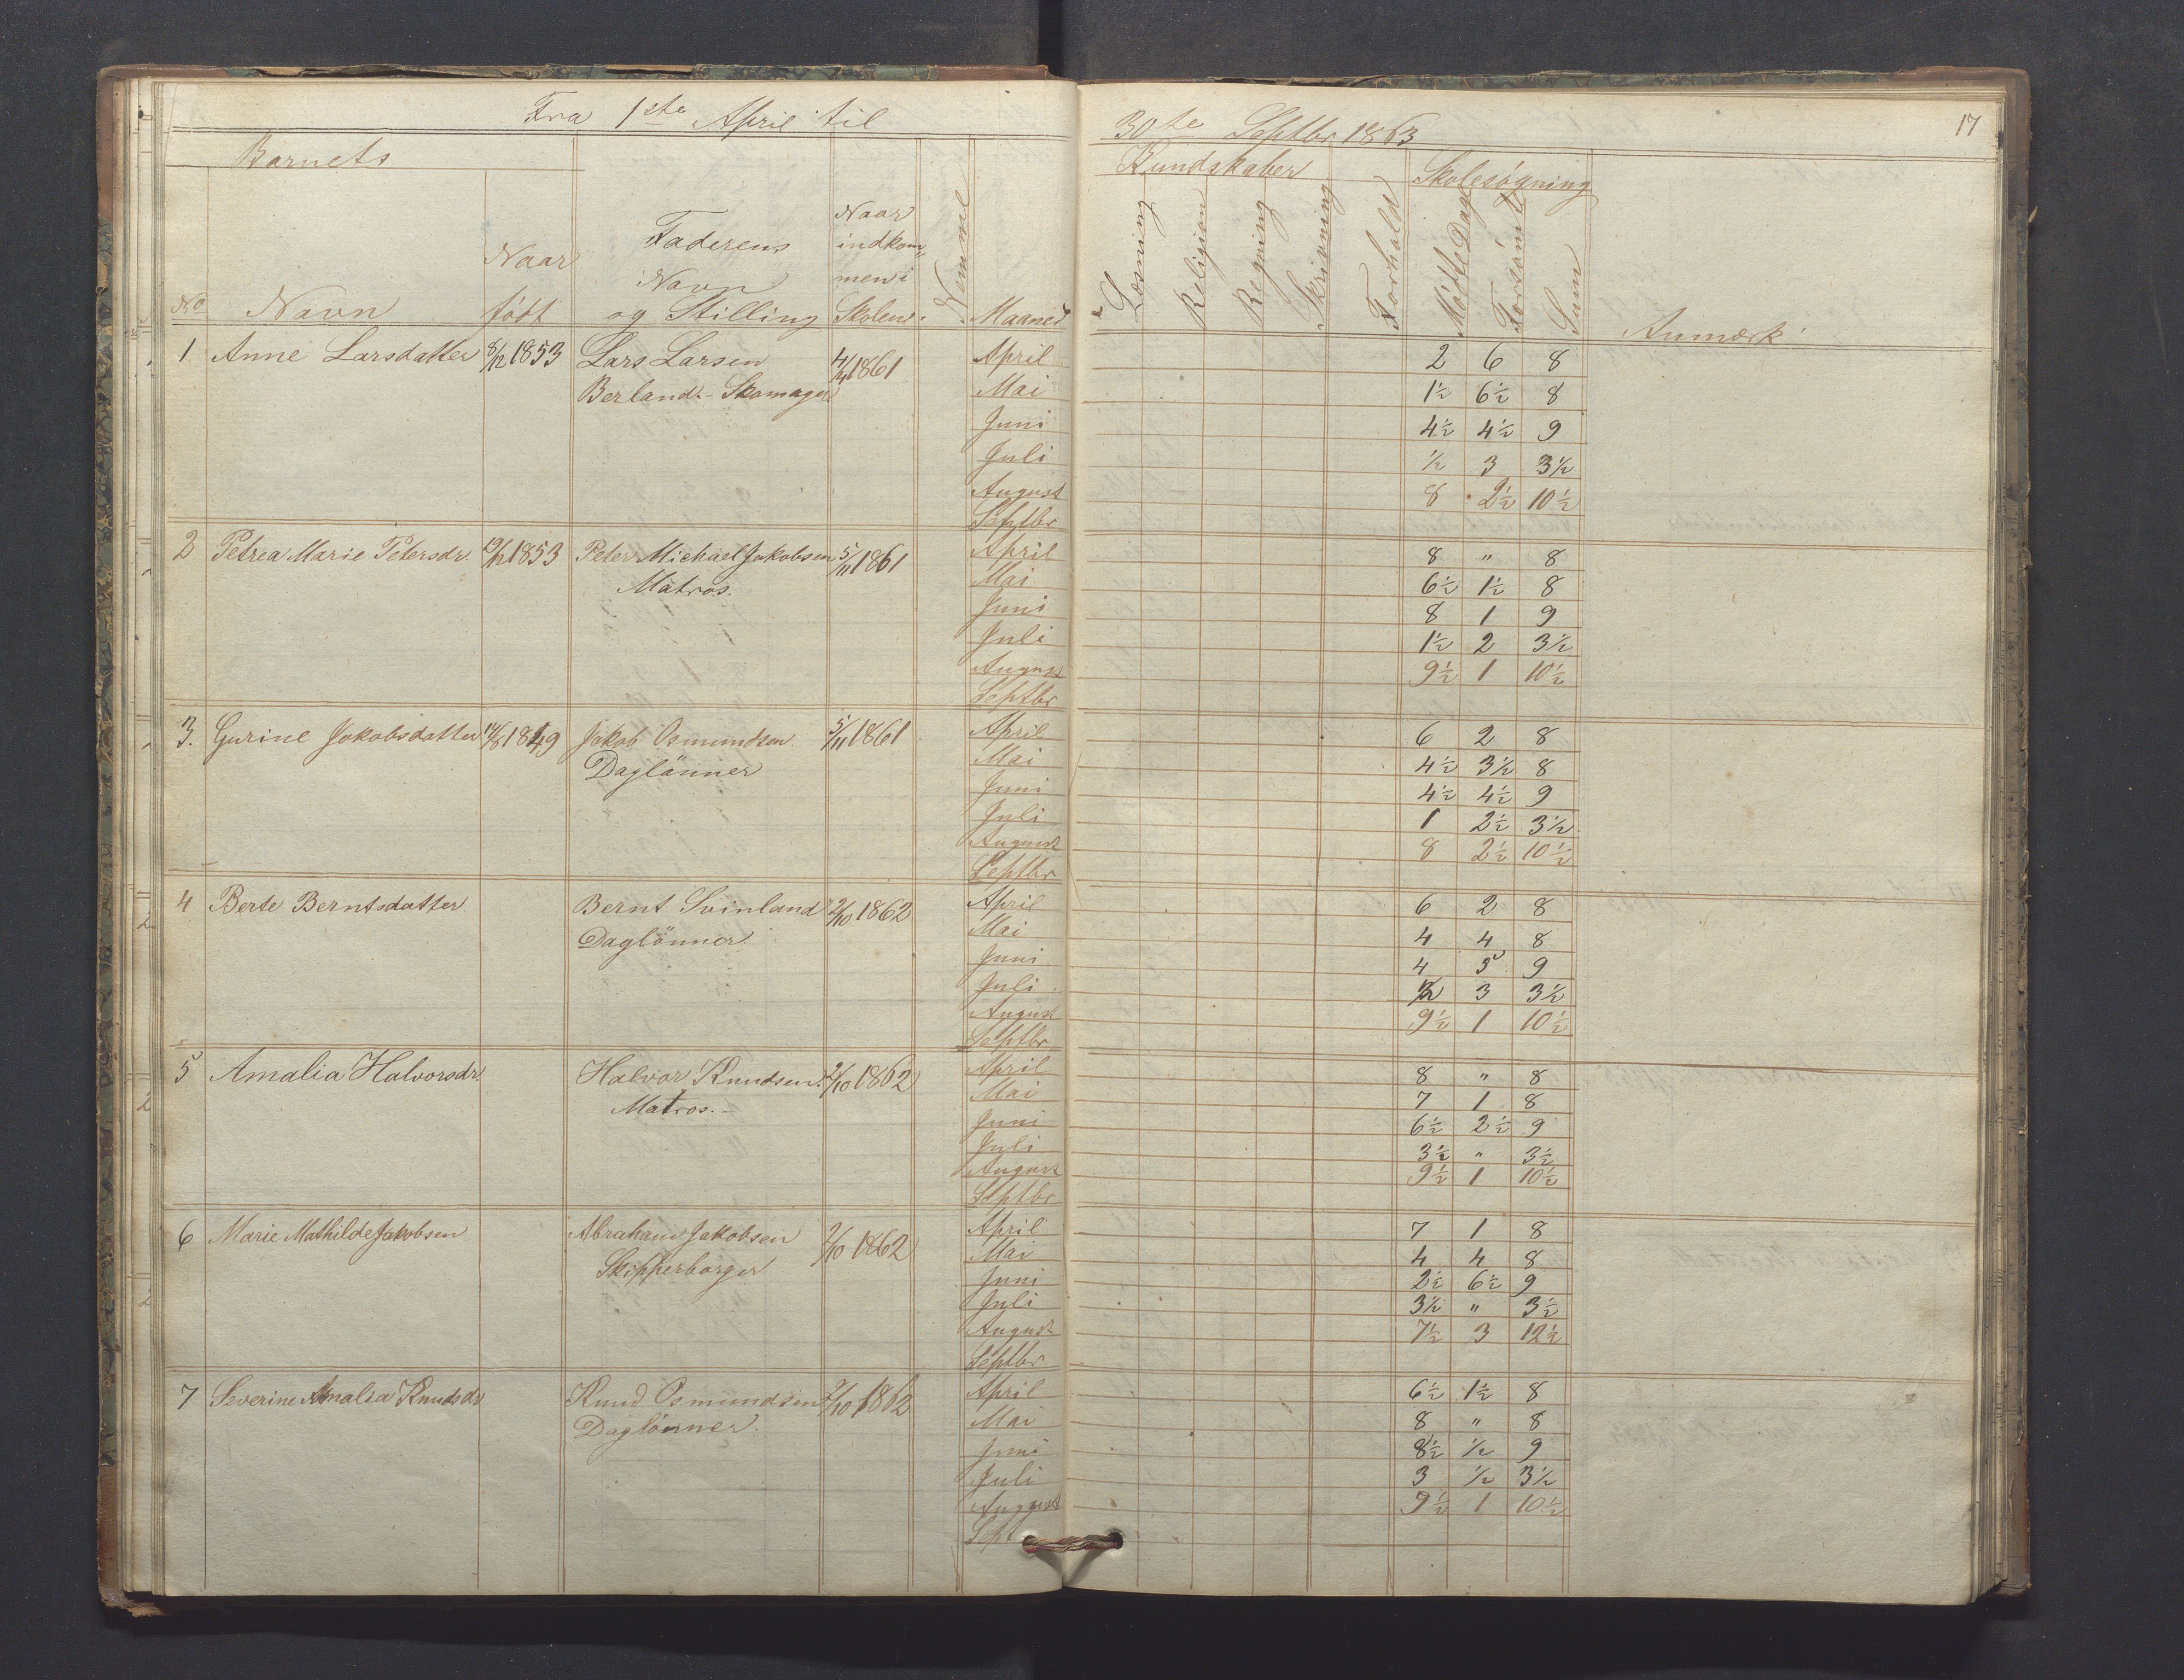 Fra 1ste April til 30te Septbr 1863
17
Barnets
Kundskaber
Skolesøgning
No
Navn
Naar født
Faderens Navn og Stilling
Naar indkommen i Skolen.
Nemme
Maaned
Læsning
Religion
Regning
Skrivning
Forhold
Mødte Dage
Forsømte
Sum
Anmærk
1 Anne Larsdatter 8/12 1853 Lars Larsen 4/11 1861 April 2 6 8
Berland. - Skomager Mai 1½ 6½ 8
Juni 4½ 4½ 9
Juli ½ 3 3½
August 8 2½ 10½
Septbr
2 Petrea Marie Petersdr. 1853 Peter Michael Jakobsen 5/11 1861 April 8 " 8
Matros. Mai 6½ 1½ 8
Juni 8 1 9
Juli 1½ 2 3½
August 9½ 1 10½
Septbr
3. Gurine Jakobsdatter 1849 Jakob Osmundsen 5/11 1861 April 6 2 8
Daglönner Mai 4½ 3½ 8
Juni 4½ 4½ 9
Juli 1 2½ 3½
August 8 2½ 10½
Septbr
4 Berte Berntsdatter Bernt Svinland 2/10 1862 April 6 2 8
Daglönner. Mai 4 4 8
Juni 4 5 9
Juli ½ 3 3½
August 9½ 1 10½
Septbr
5 Amalia Halvorsdr. Halvor Knudsen. 2/10 1862 April 8 " 8
Matros. - Mai 7 1 8
Juni 6½ 2½ 9
Juli 3½ " 3½
August 9½ 1 10½
Septbr
6 Marie Mathilde Jakobsen Abraham Jakobsen 2/10 1862 April 7 1 8
Skipperborger Mai 4 4 8
Juni 2½ 6½ 9
Juli 3½ " 3½
August 7½ 3 12½
Septbr
7 Severine Amalia Knudsdr Knud Osmundsen 2/10 1862 April 6½ 1½ 8
Daglönner. Mai 8 " 8
Juni 8½ ½ 9
Juli 3 ½ 3½
August 9½ 1 10½
Sept